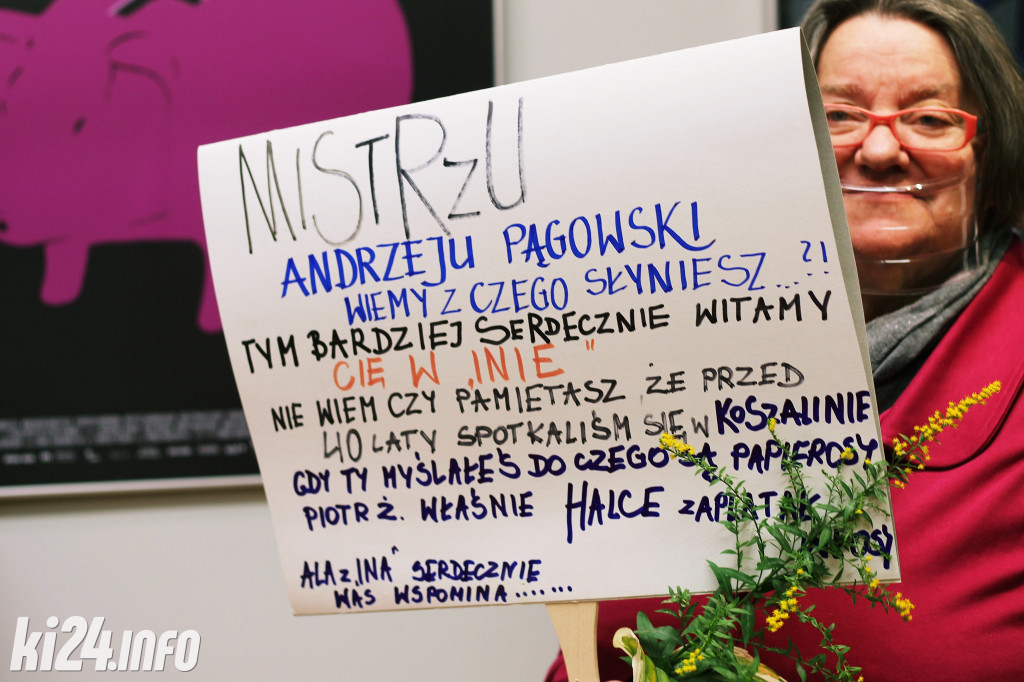 MiSTRzU
ANDRZEJU PĄGOWSKI
WIEMY Z CZEGO SŁYNIESZ...?!
TYM BARDZIEJ SERDECZNIE WITAMY
CIĘ W „INIE"
NIE WIEM CZY PAMIĘTASZ ŻE PRZED
40 LATY SPOTKALIŚM SIĘ W KOSZALINIE
GDY TY MYŚLAŁEŚ DO CZEGO SĄ PAPIEROSY
PIOTR Ż. WŁAŚNIE HALCE ZAPLATAŁ
ALA z „INA" SERDECZNIE
WAS WSPOMINA.......
ki24.info